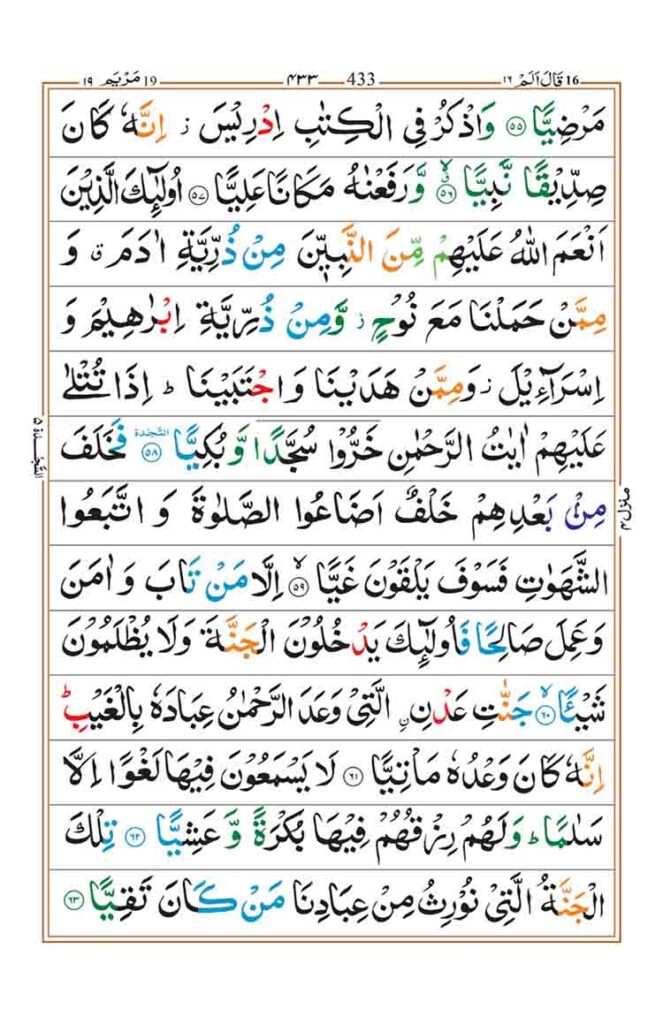 16 قَالَ اَلَمْ ١٦ 433 ٤٣٣ 19 مَرْيَم ١٩
مَرْضِيًّا ٥٥ وَاذْكُرْ فِى الْكِتٰبِ اِدْرِيْسَ ز اِنَّهٗ كَانَ
صِدِّيْقًا نَّبِيًّا ٥٦ۙ وَّرَفَعْنٰهُ مَكَانًا عَلِيًّا ٥٧ اُولٰٓئِكَ الَّذِيْنَ
اَنْعَمَ اللّٰهُ عَلَيْهِمْ مِّنَ النَّبِيّٖنَ مِنْ ذُرِّيَّةِ اٰدَمَ ق وَ
مِمَّنْ حَمَلْنَا مَعَ نُوْحٍ ز وَّمِنْ ذُرِّيَّةِ اِبْرٰهِيْمَ وَ
اِسْرَآءِيْلَ ز وَمِمَّنْ هَدَيْنَا وَاجْتَبَيْنَا ط اِذَا تُتْلٰى
عَلَيْهِمْ اٰيٰتُ الرَّحْمٰنِ خَرُّوْا سُجَّدًا وَّبُكِيًّا ٥٨ السَّجْدَة فَخَلَفَ
السَّجْدَة ٥
مِنْ بَعْدِهِمْ خَلْفٌ اَضَاعُوا الصَّلٰوةَ وَاتَّبَعُوا
منزل ٤
الشَّهَوٰتِ فَسَوْفَ يَلْقَوْنَ غَيًّا ٥٩ۙ اِلَّا مَنْ تَابَ وَاٰمَنَ
وَعَمِلَ صَالِحًا فَاُولٰٓئِكَ يَدْخُلُوْنَ الْجَنَّةَ وَلَا يُظْلَمُوْنَ
شَيْئًا ٦٠ۙ جَنّٰتِ عَدْنِ ِۨ الَّتِىْ وَعَدَ الرَّحْمٰنُ عِبَادَهٗ بِالْغَيْبِ ط
اِنَّهٗ كَانَ وَعْدُهٗ مَاْتِيًّا ٦١ لَا يَسْمَعُوْنَ فِيْهَا لَغْوًا اِلَّا
سَلٰمًا ط وَلَهُمْ رِزْقُهُمْ فِيْهَا بُكْرَةً وَّعَشِيًّا ٦٢ تِلْكَ
الْجَنَّةُ الَّتِىْ نُوْرِثُ مِنْ عِبَادِنَا مَنْ كَانَ تَقِيًّا ٦٣